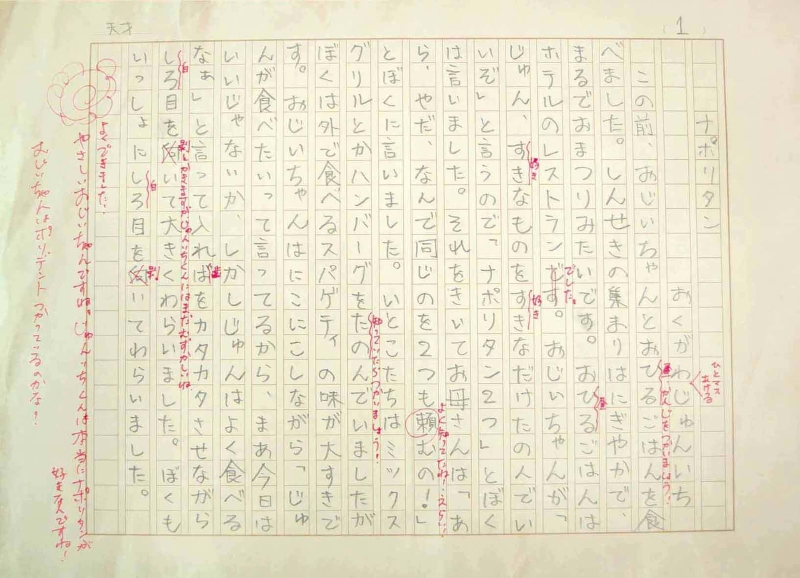 天才
(1)
ナポリタン
おくがわじゅんいち
ひとマスあける
この前、おじいちゃんとおひるごはんを食
昼 かんじをつかいましょう！
べました。しんせきの集まりはにぎやかで、
まるでおまつりみたいです。おひるごはんは
昼
ホテルのレストランです。おじいちゃんが「
でした。
じゅん、すきなものをすきなだけたのんでい
好き
好き
いぞ」と言うので「ナポリタン2つ」とぼく
は言いました。それをきいてお母さんは「あ
ら、やだ、なんで同じのを2つも頼むの！」
よく知ってたね！えらい！
とぼくに言いました。いとこたちはミックス
グリルとかハンバーグをたのんでいましたが
知っていたらつかいましょう！
ぼくは外で食べるスパゲティの味が大すきで
す。おじいちゃんはにこにこしながら「じゅ
んが食べたいって言ってるから、まあ今日は
いいじゃないか、しかしじゅんはよく食べる
なぁ」と言って入ればをカタカタさせながら
歯
しろ目を剥いて大きくわらいました。ぼくも
白
とかきますがじゅんいちくんにはまだむずかしいね
いっしょにしろ目を剥いてわらいました。
白
よくできました！
やさしいおじいちゃんですね。じゅんいちくんは本当にナポリタンが
好きなんですね！
おじいちゃんはポリデントつかっているのかな！